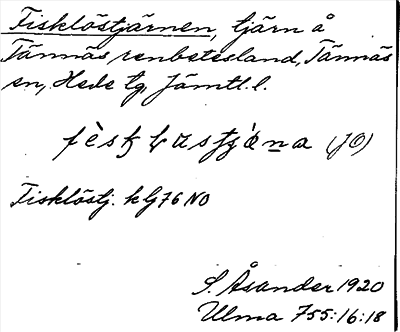 Fisklöstjärnen, tjärn å
Tännäs renbetesland, Tännäs
sn, Hede tg, Jämtl. l.
(JO)
Fisklöstj. kbl 76 NO
S. Åsander 1920
Ulma 755:16:18